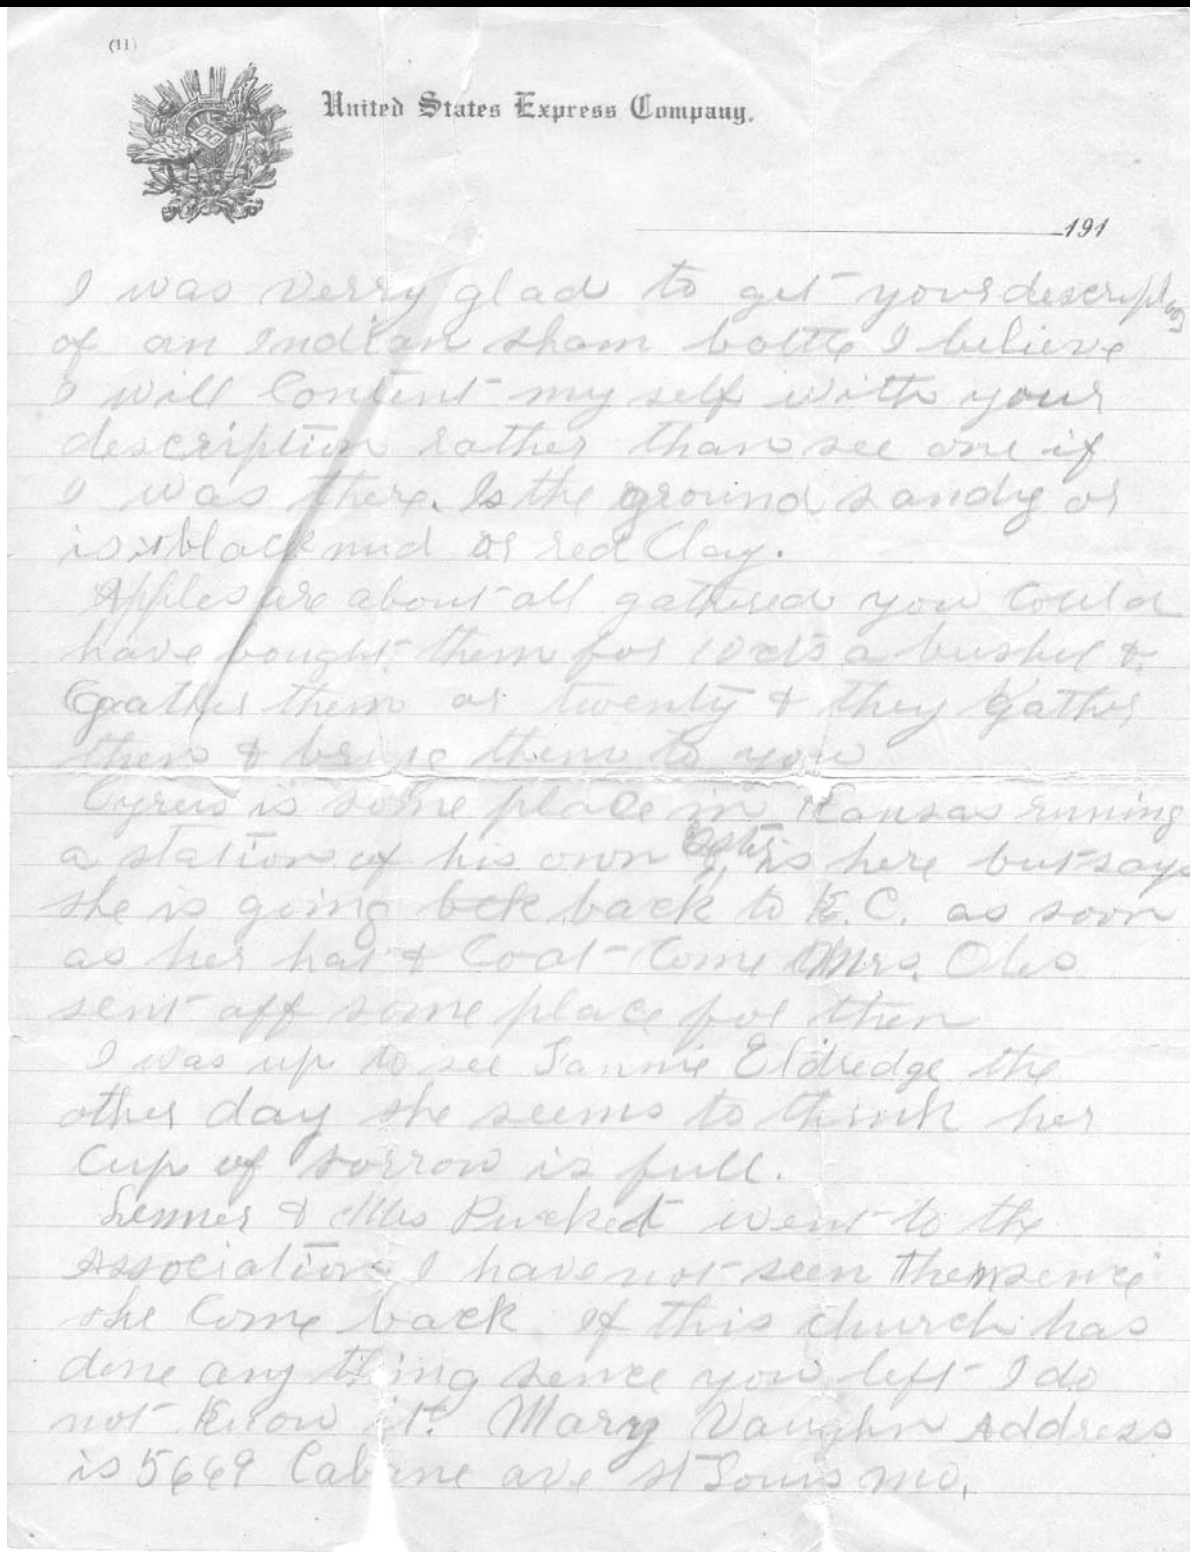 (11)
United States Express Company.
191
I was verry glad to get your description
of an Indian sham battle I believe
I will Content my self with your
description rather than see one if
I was there. Is the ground sandy or
is it black mud or red Clay.
Apples are about all gathered you Could
have bought them for 10 cts a bushel &
Gather them or twenty & they gather
them & bring them to you
Cyrus is some place in Kansas runing
a station of his own is here but says
she is going back to K.C. as soon
as her hat & Coat Come Mrs.
sent off some place for them
I was up to see Fannie Eldredge the
other day she seems to think her
Cup of sorrow is full.
& Mrs Pucket went to the
Association I have not seen them sence
she Come back if this church has
done any thing sence you left I do
not Know it. Mary Vaughn Address
is 5669 Cabane ave st Louis mo.